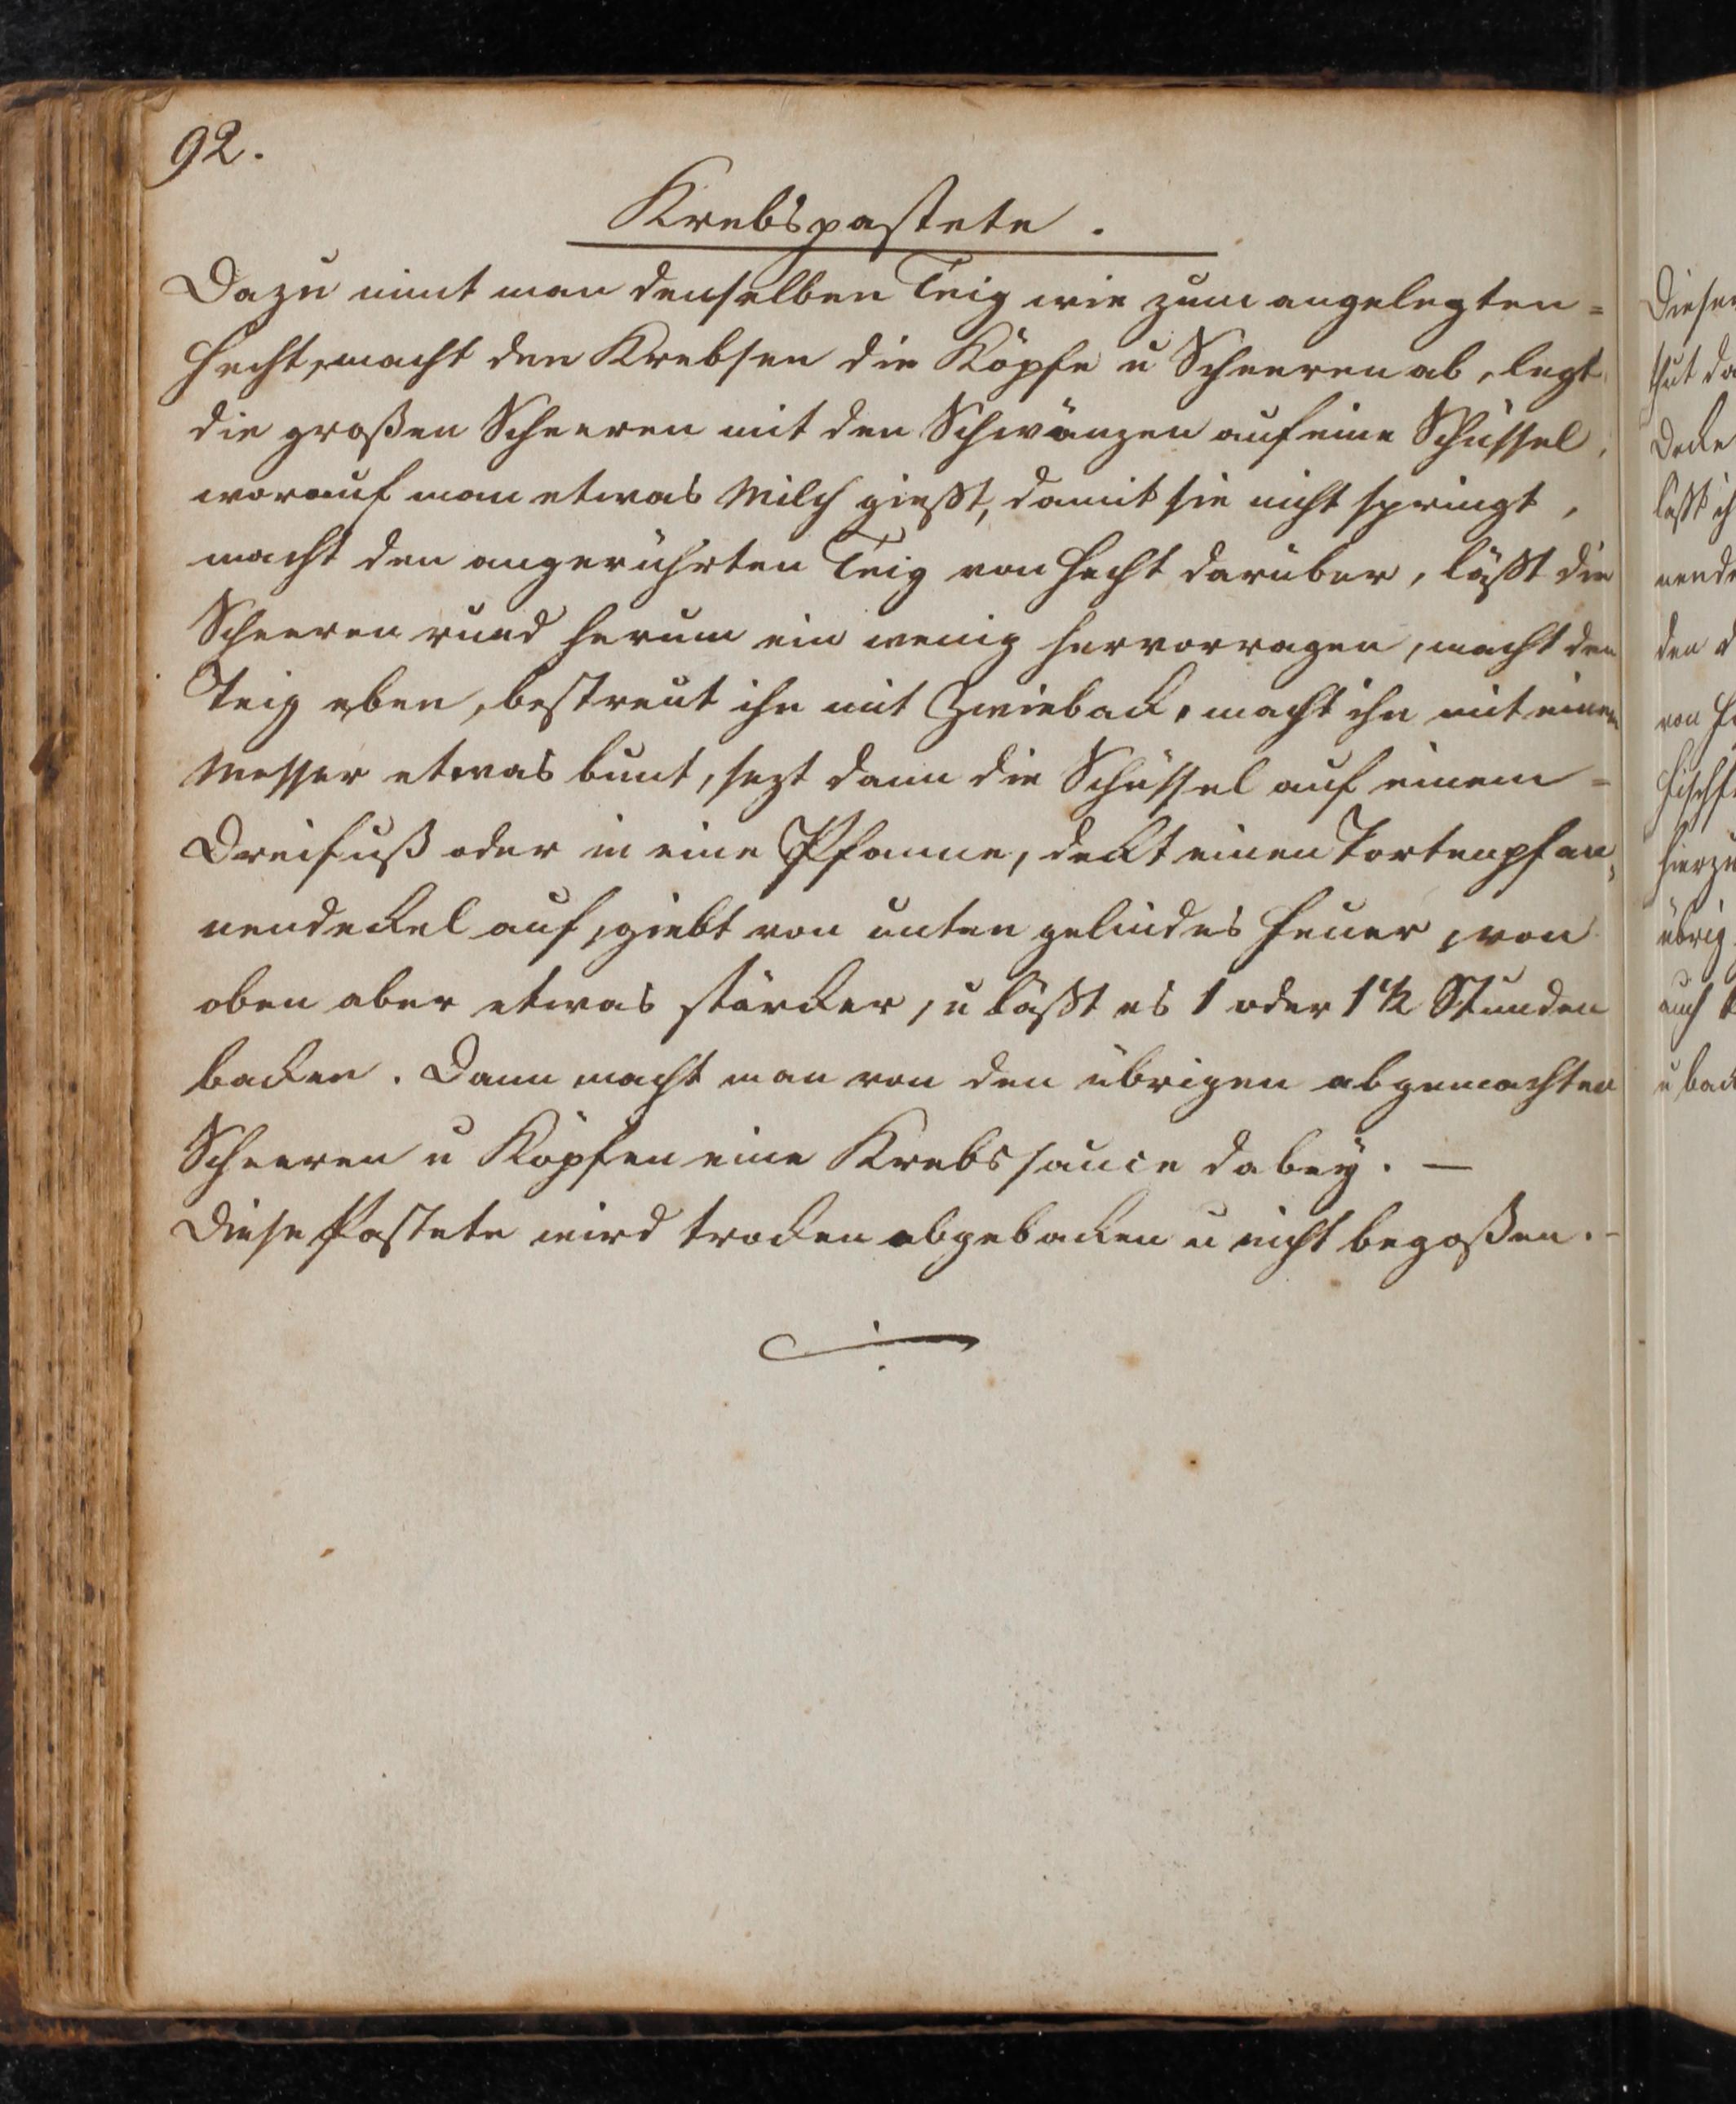 92.
Krebspastete.
Dazu nimt man denselben Teig wie zum angelegten=
Hecht, macht den Krebsen die Köpfe u Scheeren ab, legt
die großen Scheeren mit den Schwänzen auf eine Schüssel,
worauf man etwas Milch gießt, damit sie nicht springt,
macht den angerührten Teig von Hecht darüber, läßt die
Scheeren rund herum ein wenig hervorragen, macht den
Teig eben, bestreut ihn mit Zwieback, macht ihn mit einem
Messer etwas bunt, sezt dann die Schüssel auf einem=
Dreifuß oder in eine Pfanne, dekt einen Tortenpfan=
nendeckel auf, giebt von unten gelindes Feuer, von
oben aber etwas stärcker, u läßt es 1 oder 1 1/2 Stunden
backen. Dann macht man von den übrigen abgemachten
Scheeren u Köpfen eine Krebssauce dabey. —
Diese Pastete wird trocken abgebacken u nicht begoßen. -
Diese
thut da
Decke
läßt ih
den d
von H
hierzu
übrig
auch
u back